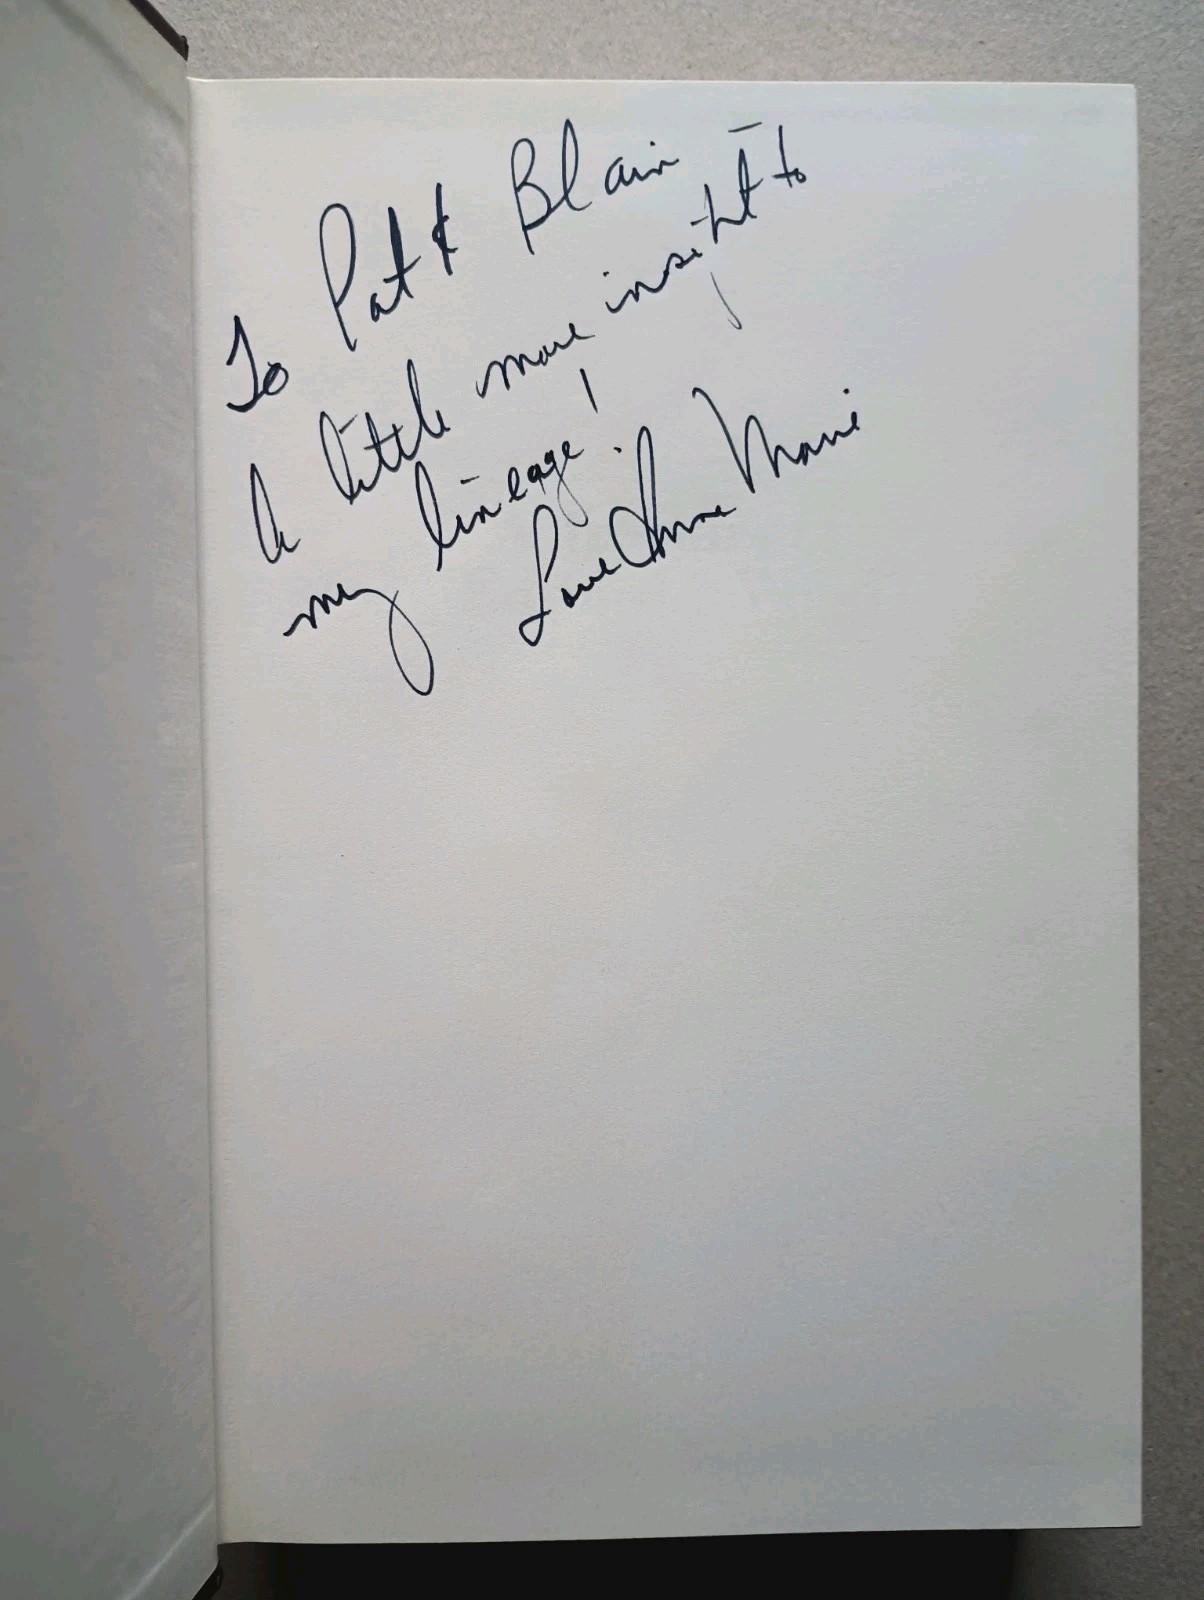 To Pat & Blain –
A little more insight to
my lineage!
Love Anne Marie